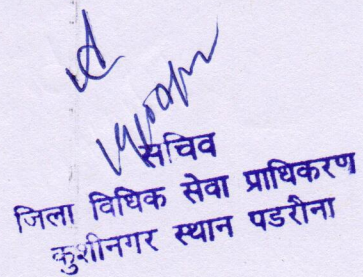 सचिव
जिला विधिक सेवा प्राधिकरण
कुशीनगर स्थान पडरौना